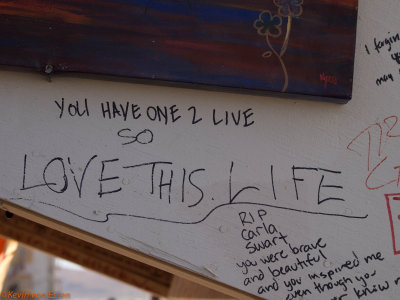 YOU HAVE ONE 2 LIVE
SO
LOVE THIS LIFE
RIP
carla
swart
you were brave
and beautiful
and you inspired me
even though you
know m
I forgiv